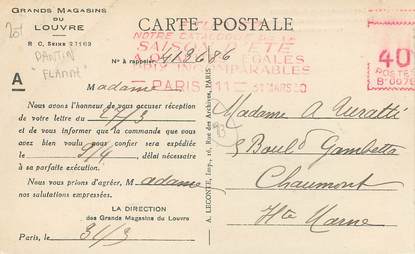 GRANDS MAGASINS
DU
LOUVRE
R C, SEINE 27169
PANTIN
"FLAMME"
CARTE POSTALE
NOTRE CATALOGUE DE LA
SAISON D'ÉTÉ
PARIS 111 31 MARS 30
40
POSTES
N° à rappeler 413686
A
Madame
Nous avons l'honneur de vous accuser réception
de votre lettre du 27/3
et de vous informer que la commande que vous
avez bien voulu nous confier sera expédiée
le 9/4, délai nécessaire
à sa parfaite exécution.
Nous vous prions d'agréer, Madame
nos salutations empressées.
LA DIRECTION
des Grands Magasins du Louvre
Paris, le 31/3
A. LECONTE, Imp., 16, Rue des Archives, PARIS
Madame A Turatti
5 Bould Gambetta
Chaumont
Hte Marne